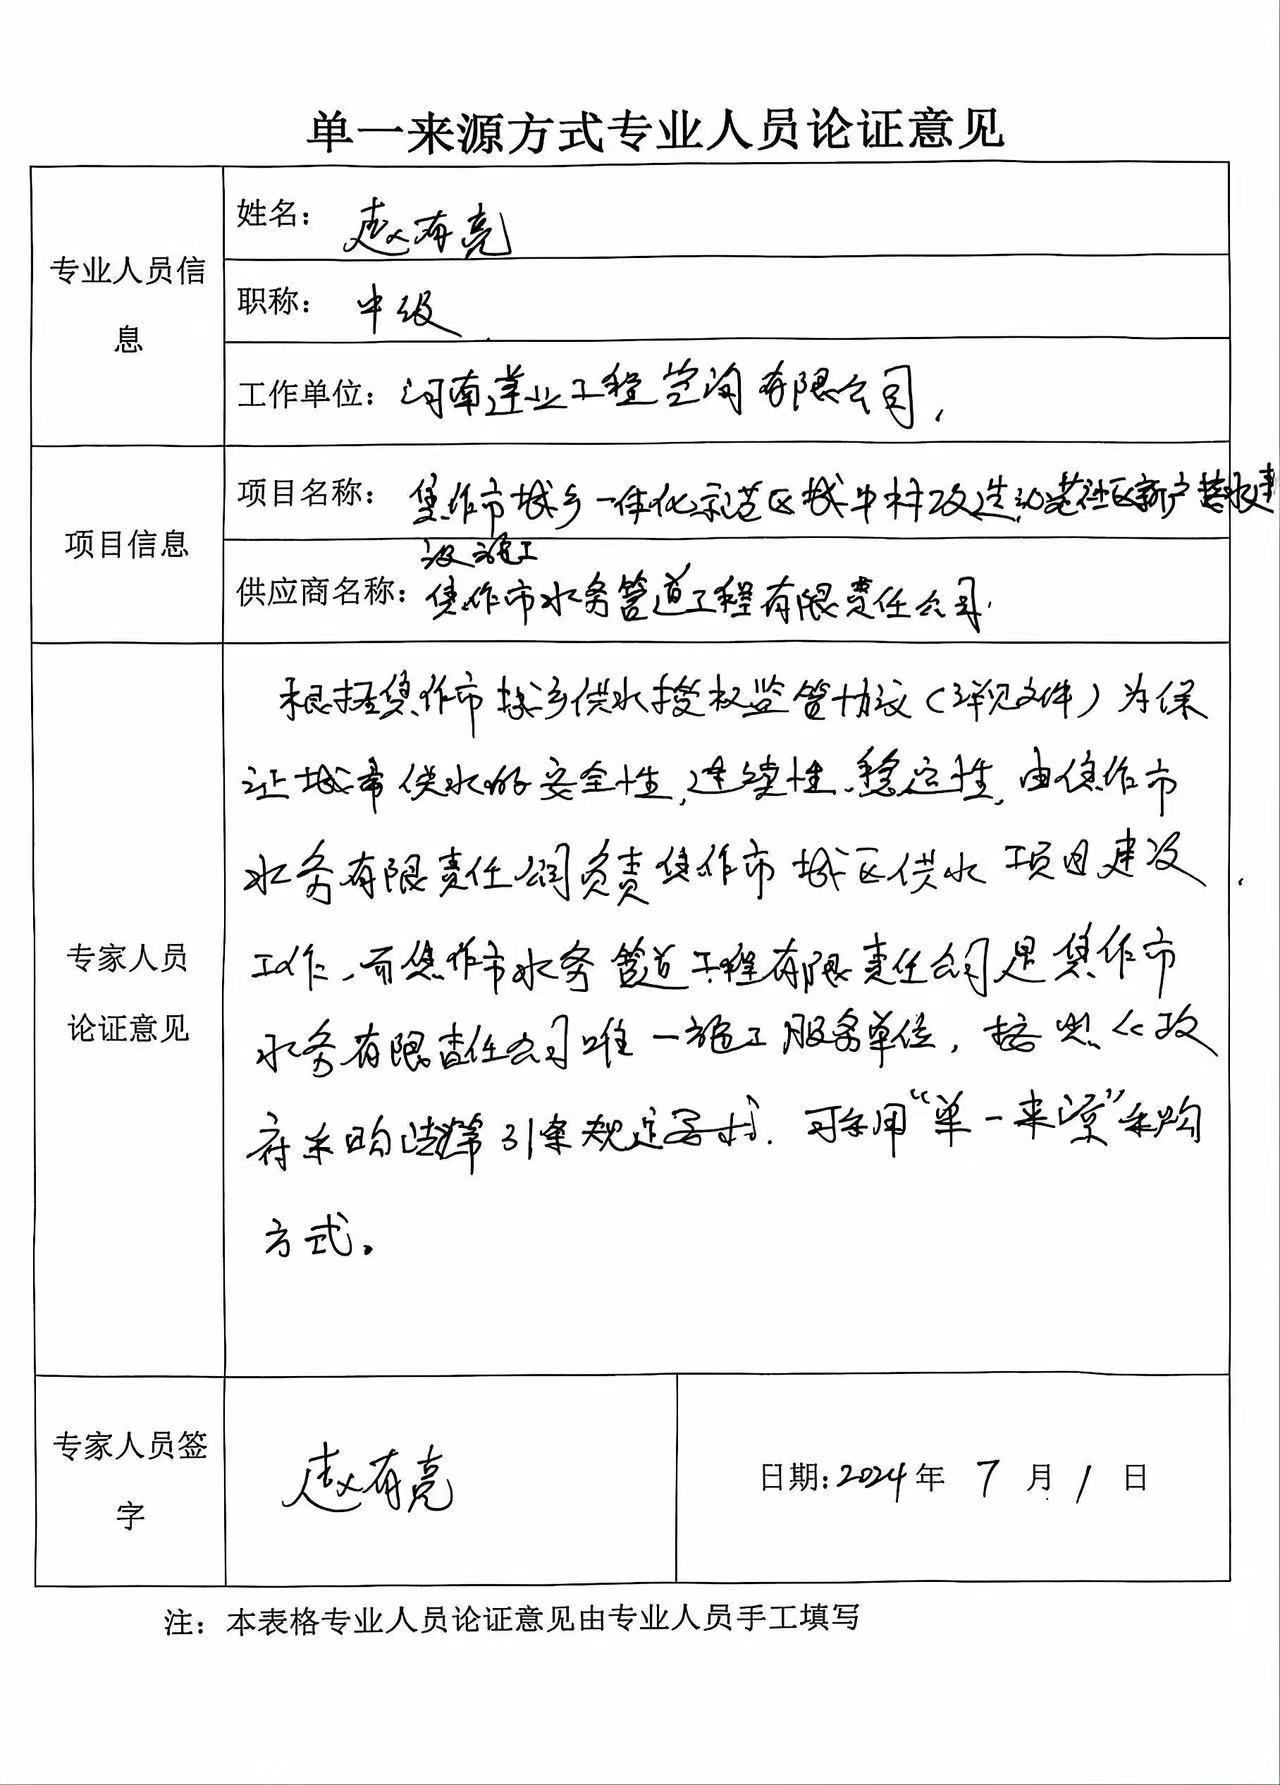 单一来源方式专业人员论证意见
专业人员信息
姓名：赵有亮
职称：中级
工作单位：河南建业工程咨询有限公司
项目信息
项目名称：焦作市城乡一体化示范区城中村改造 社区新户接水建
设施工
供应商名称：焦作市水务管道工程有限责任公司
专家人员
论证意见
根据焦作市城乡供水授权监管协议（详见文件）为保
证城市供水的安全性、连续性、稳定性，由焦作市
水务有限责任公司负责焦作市城区供水项目建设
工作，而焦作市水务管道工程有限责任公司是焦作市
水务有限责任公司唯一施工服务单位，按照《政
府采购法》第31条规定 ，可采用“单一来源”采购
方式。
专家人员签字
赵有亮
日期：2024年7月1日
注：本表格专业人员论证意见由专业人员手工填写